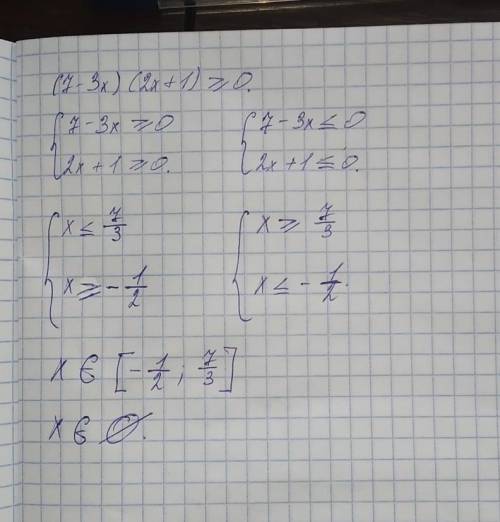 (7-3x)(2x+1) ≥ 0.
{ 7-3x ≥ 0
2x+1 ≥ 0.
{ 7-3x ≤ 0
2x+1 ≤ 0.
{ x ≤ 7/3
x ≥ -1/2
{ x ≥ 7/3
x ≤ -1/2.
x ∈ [-1/2; 7/3]
x ∈ ∅.